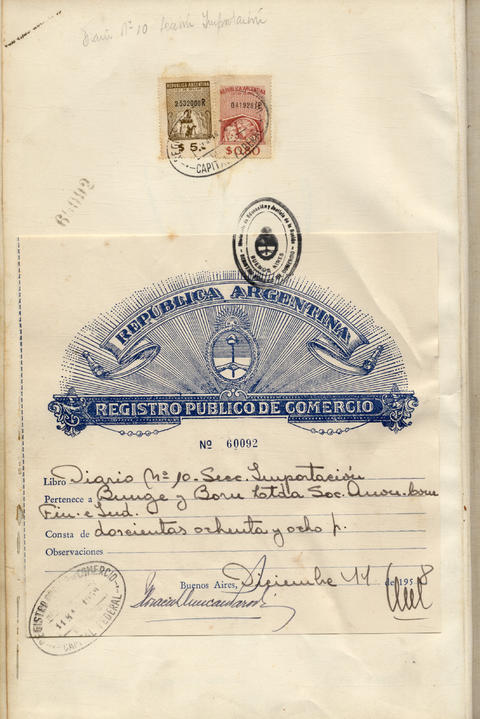 Diario Nº 10 Secc. Importación
REPUBLICA ARGENTINA
2532000R
$ 5.
REPUBLICA ARGENTINA
$0.80
CAPITAL
60092
REPUBLICA ARGENTINA
REGISTRO PUBLICO DE COMERCIO
Nº 60092
Libro Diario Nº 10. Secc. Importación
Pertenece a Bunge y Born Ltda Soc. Anon. Com
Fin. e Ind.
Consta de doscientas ochenta y ocho p.
Observaciones
Buenos Aires, Diciembre 11 de 1958
REGISTRO COMERCIO
CAPITAL FEDERAL